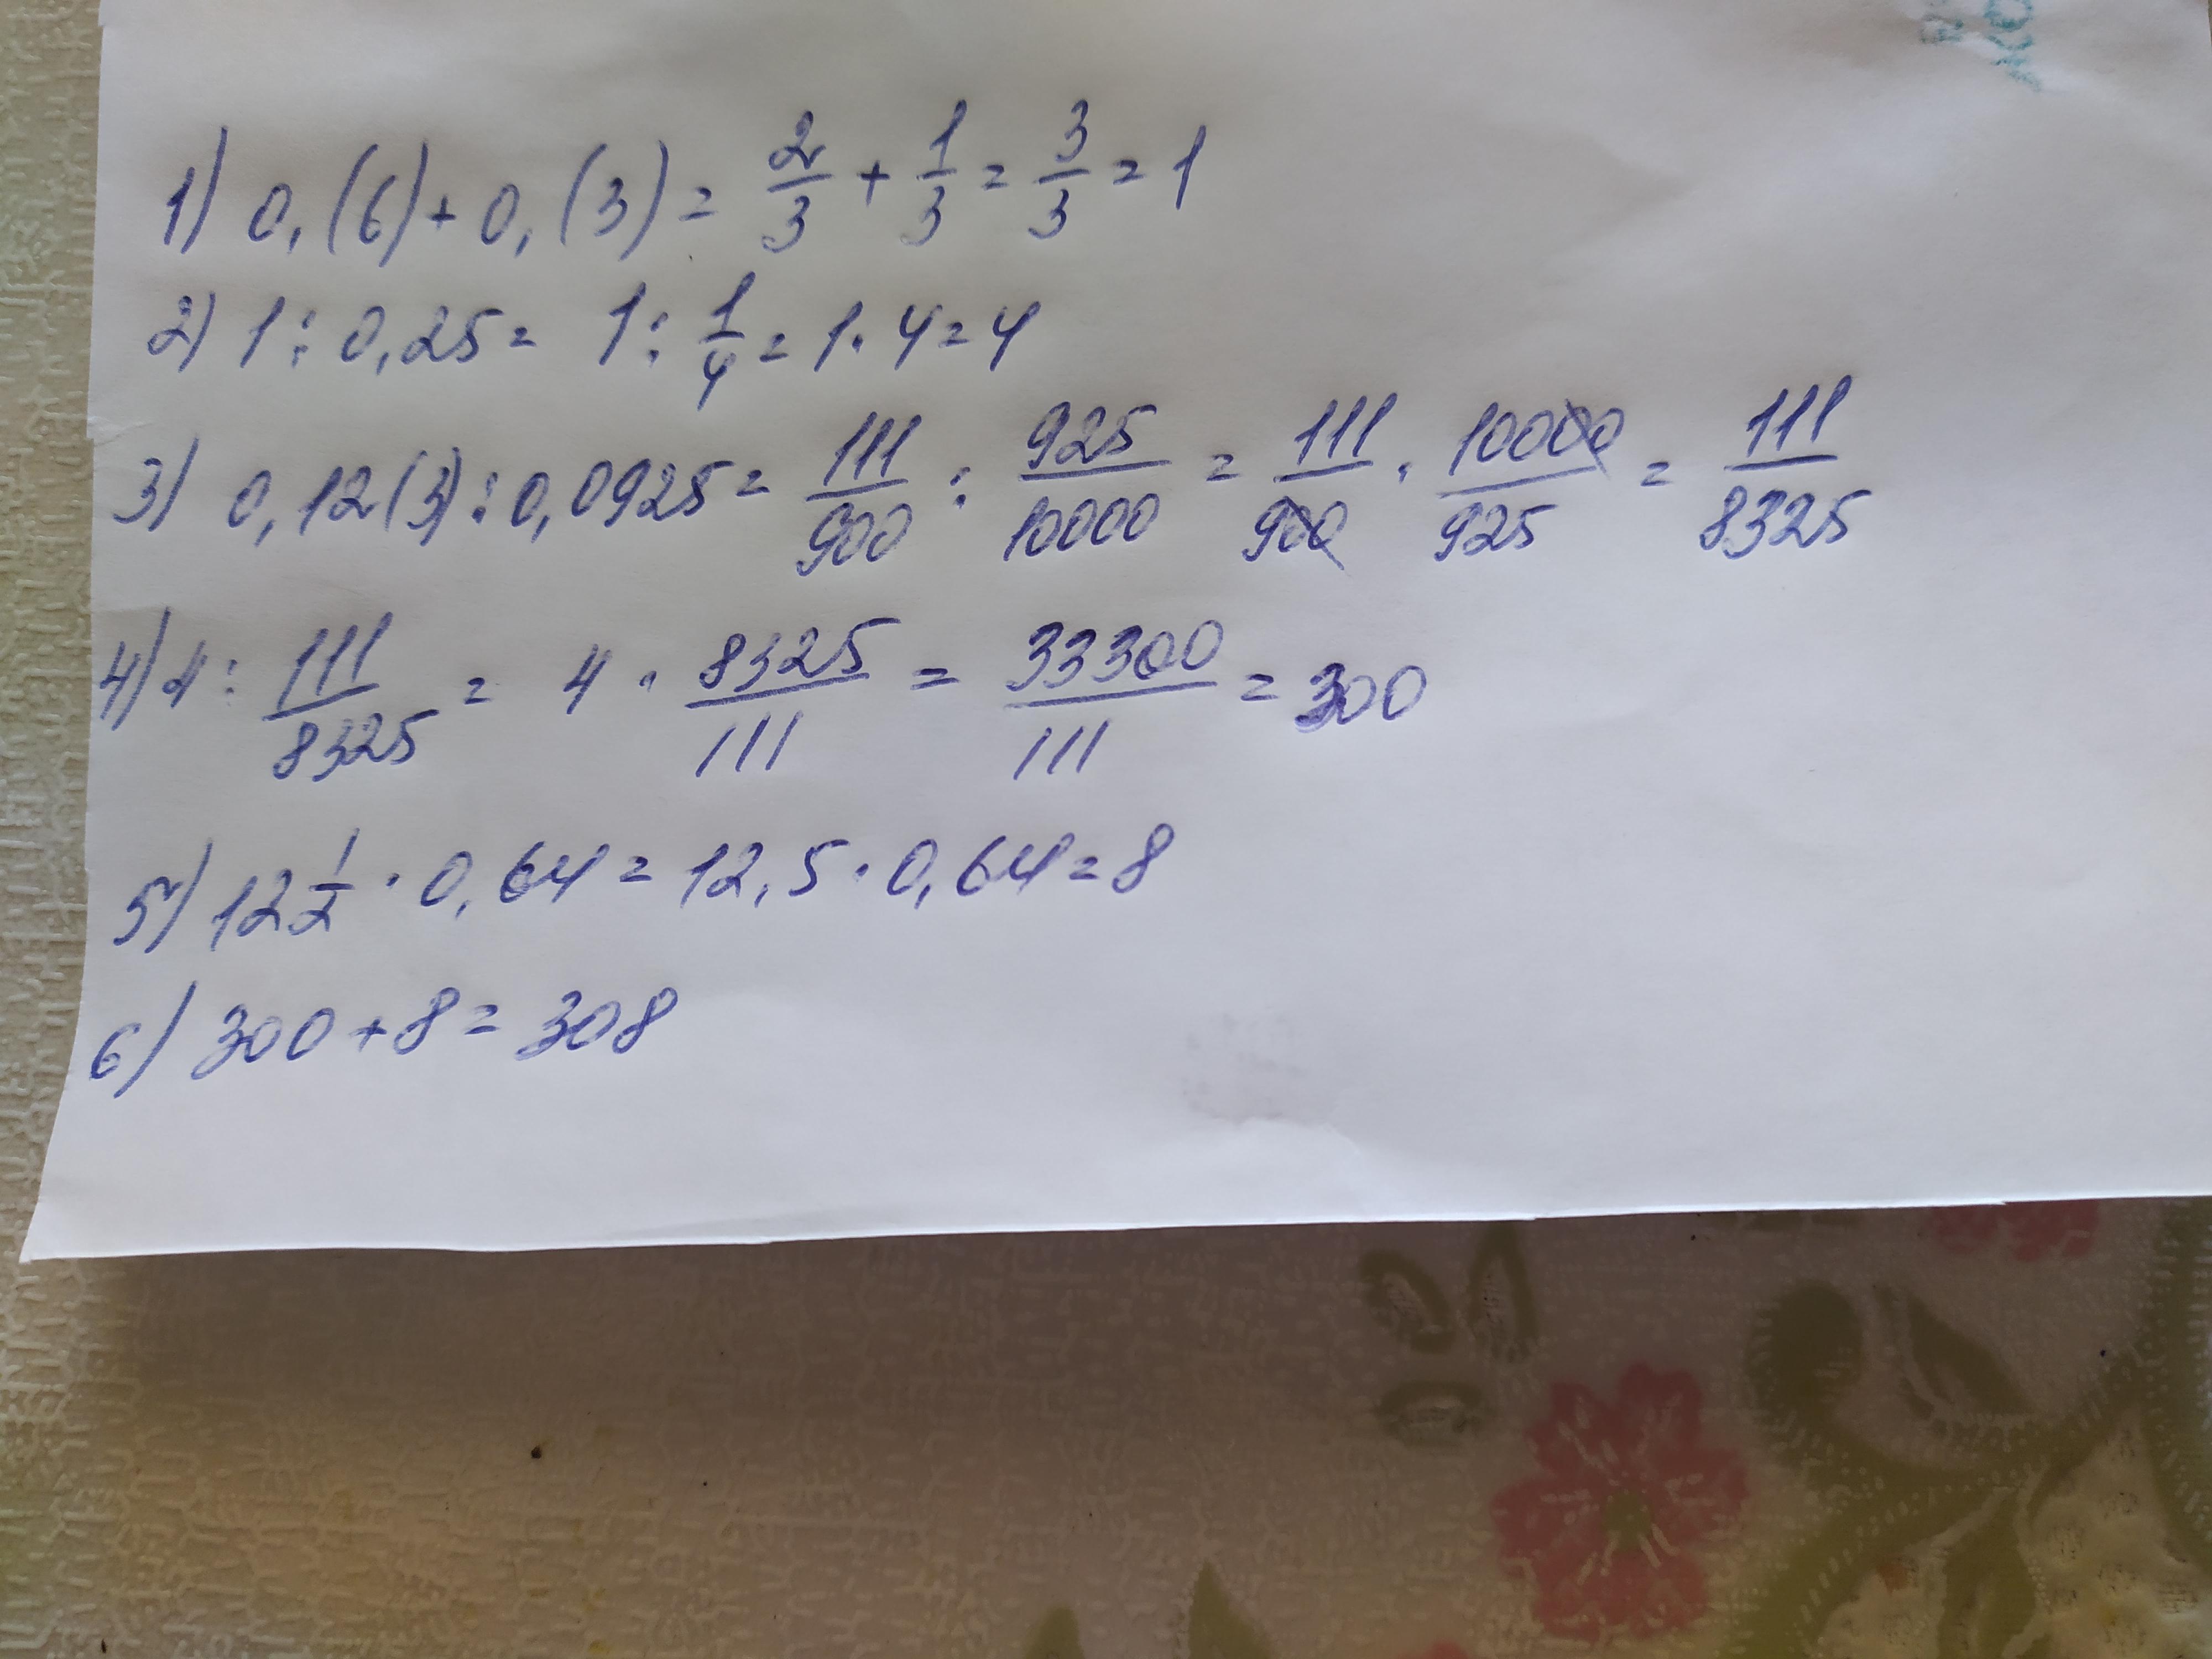 1) 0,(6)+0,(3)= 2/3 + 1/3 = 3/3 = 1
2) 1:0,25= 1: 1/4 = 1·4=4
3) 0,12(3):0,0925= 111/900 : 925/10000 = 111/900 · 10000/925 = 111/8325
4) 4: 111/8325 = 4 · 8325/111 = 33300/111 = 300
5) 12 1/2 · 0,64=12,5·0,64=8
6) 300+8=308